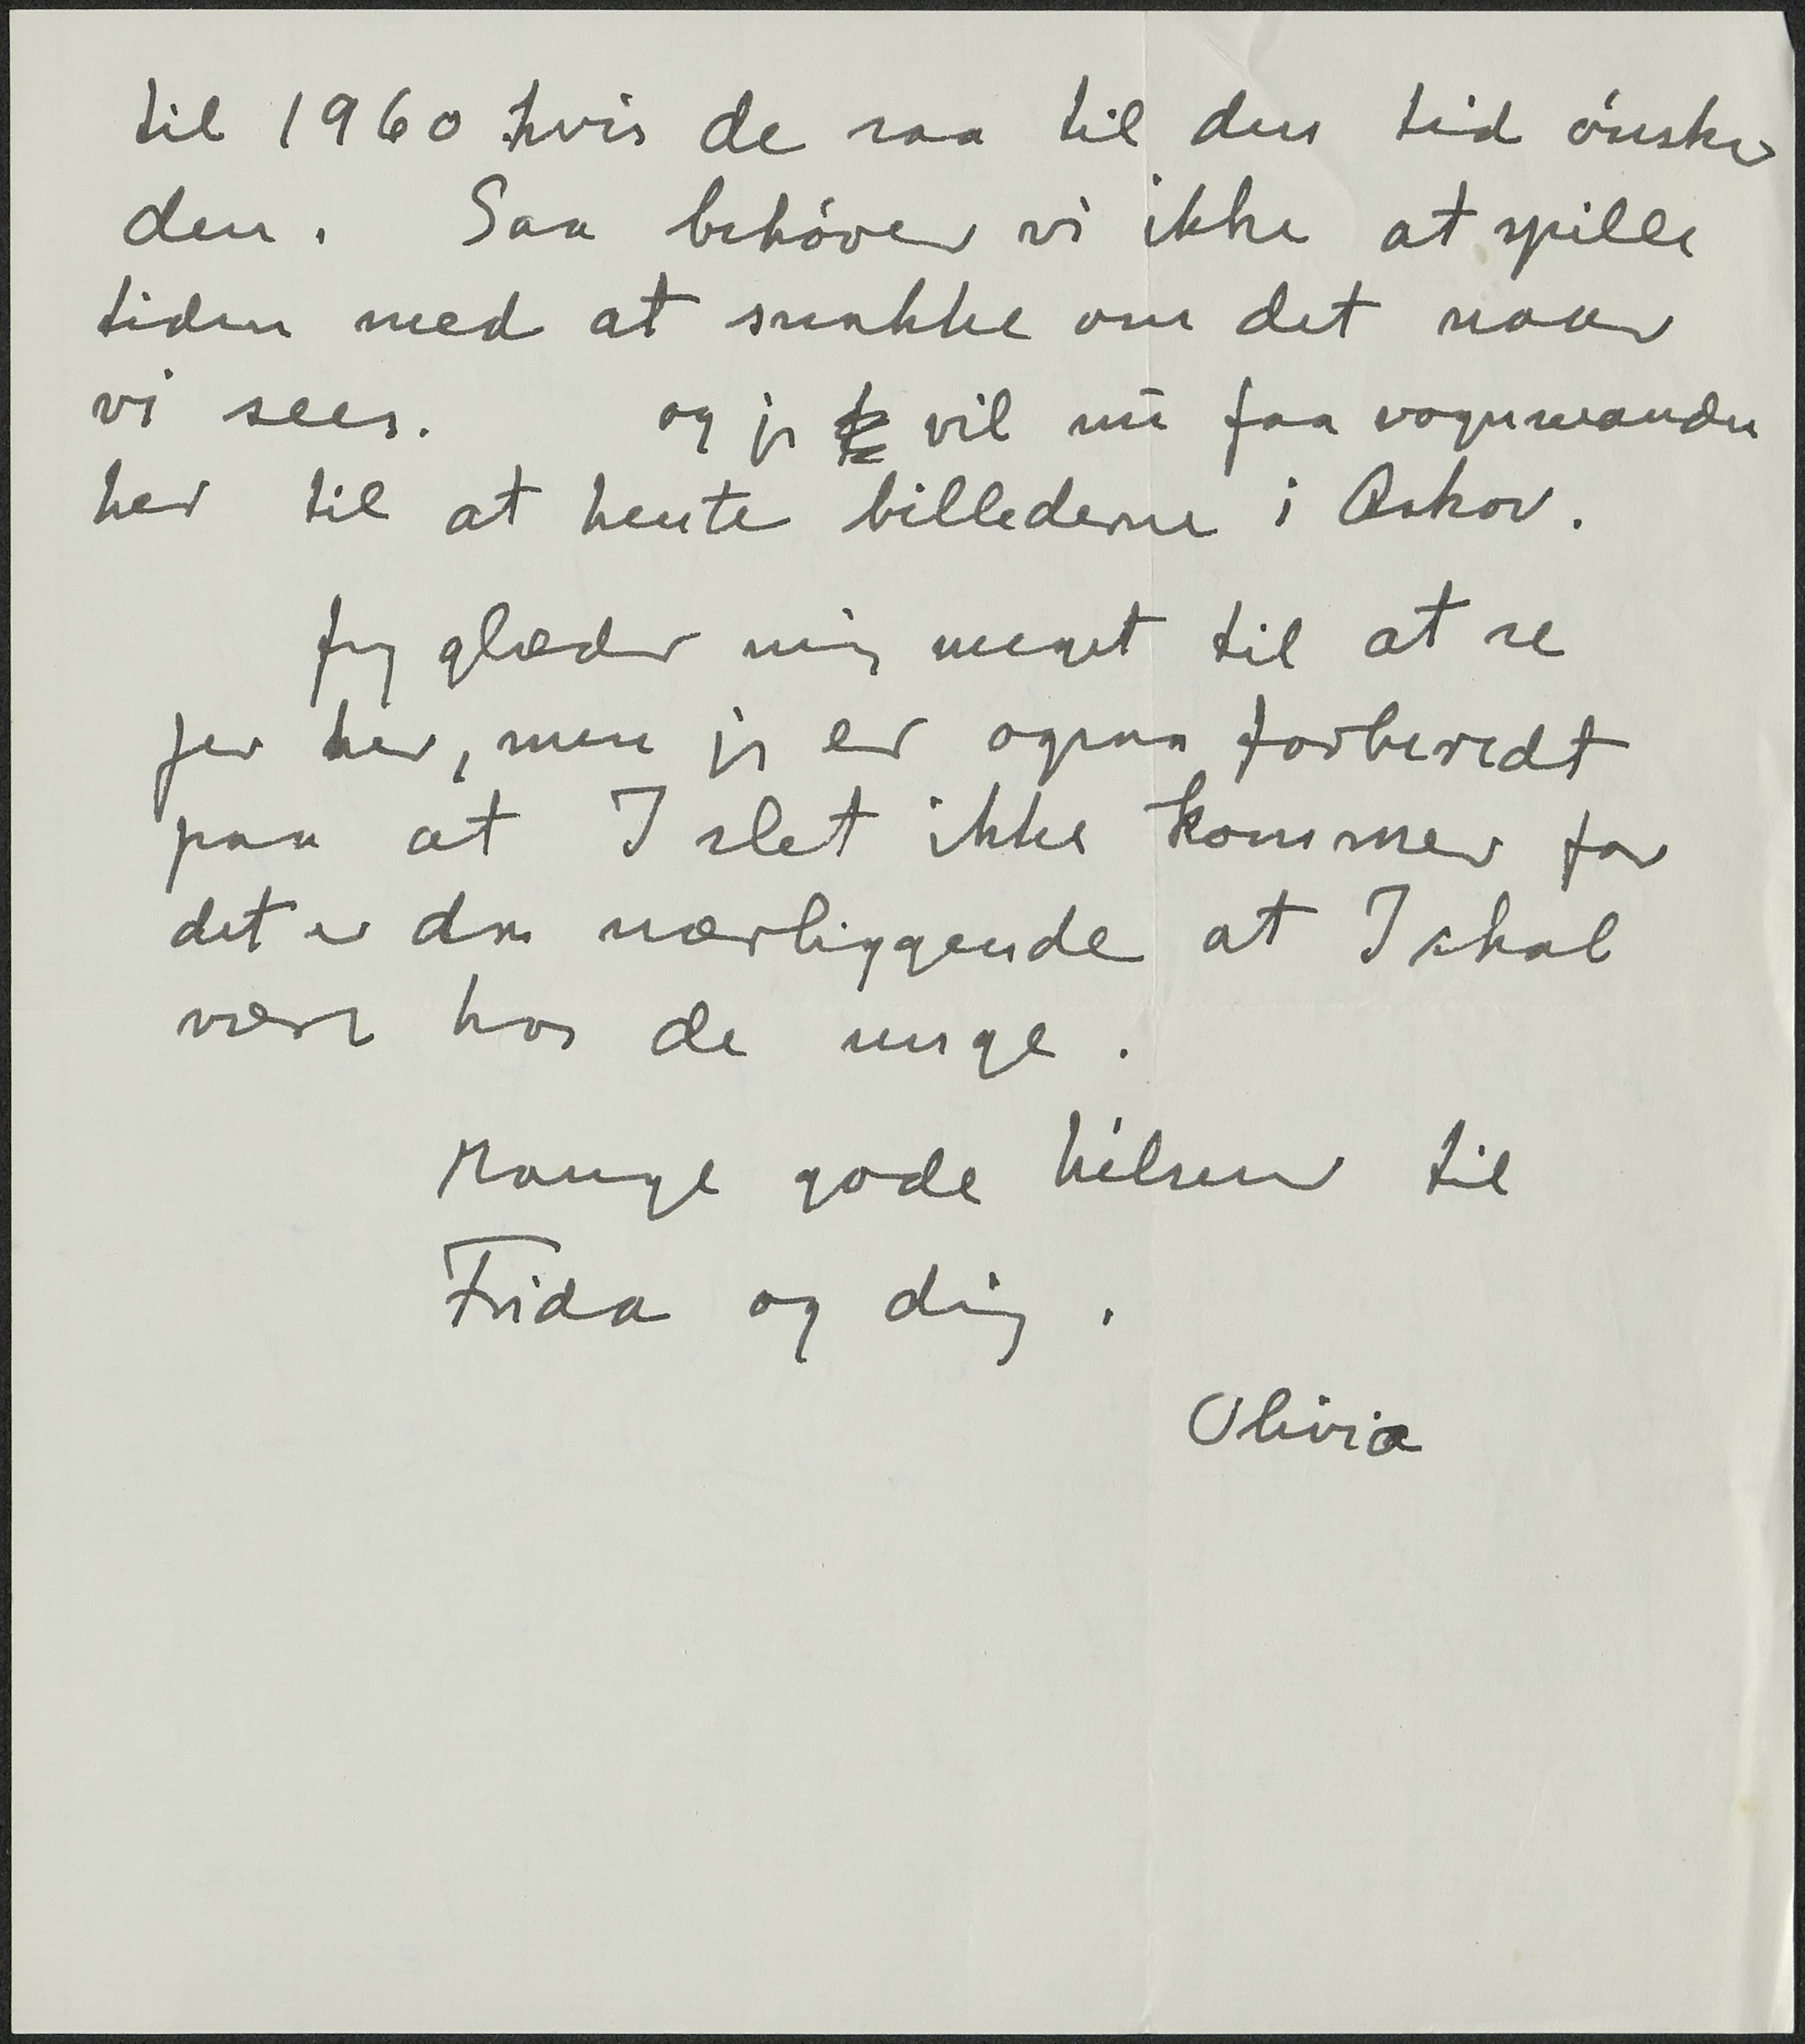 til 1960 hvis de saa til den tid ønsker
den. Saa behøver vi ikke at spille
tiden med at snakke om det naar
vi sees. og jeg vil nu faa vognmanden
her til at hente billederne i Askov.
Jeg glæder mig meget til at se
jer her, men jeg er ogsaa forberedt
paa at I slet ikke kommer for
det er den nærliggende at I skal
være hos de unge.
Mange gode hilsener til
Frida og dig.
Olivia